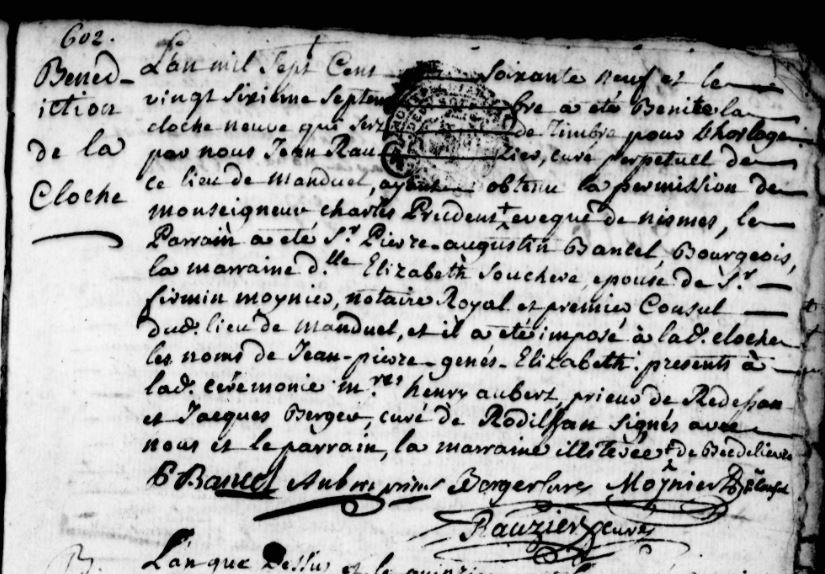 602.
Bened-
iction
de la
Cloche
L'an mil Sept Cent soixante neuf et le
vingt sixieme Septembre a été Benite la
cloche neuve qui sert de Timbre pour L'horloge
par nous Jean Rauzier, curé perpetuel de
ce lieu de manduel, ayant obtenu la permission de
monseigneur charles Prudent + eveque de nismes, le
Parrain a été Sr. Pierre-augustin Bancel Bourgeois,
la marraine d.lle Elizabeth Souchere, epouse de Sr.
firmin moynier, notaire Royal et premier Consul
dud. lieu de manduel, et il a été imposé à lad. cloche
les noms de Jean-pierre-genés-Elizabeth. presents à
lad. cérémonie m.res henry aubert, prieur de Redessan
et Jacques Berger, curé de Rodilhan signés avec
nous et le parrain, la marraine illiterée + de Becdelievre
Bancel Aubert prieur Berger curé Moynier
Rauzier curé
L'an que Dessus et le quinzieme